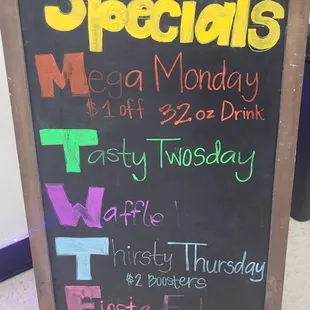 Specials
Mega Monday
$1 off 32 oz Drink
Tasty Twosday
Waffle
Thirsty Thursday
$2 Boosters